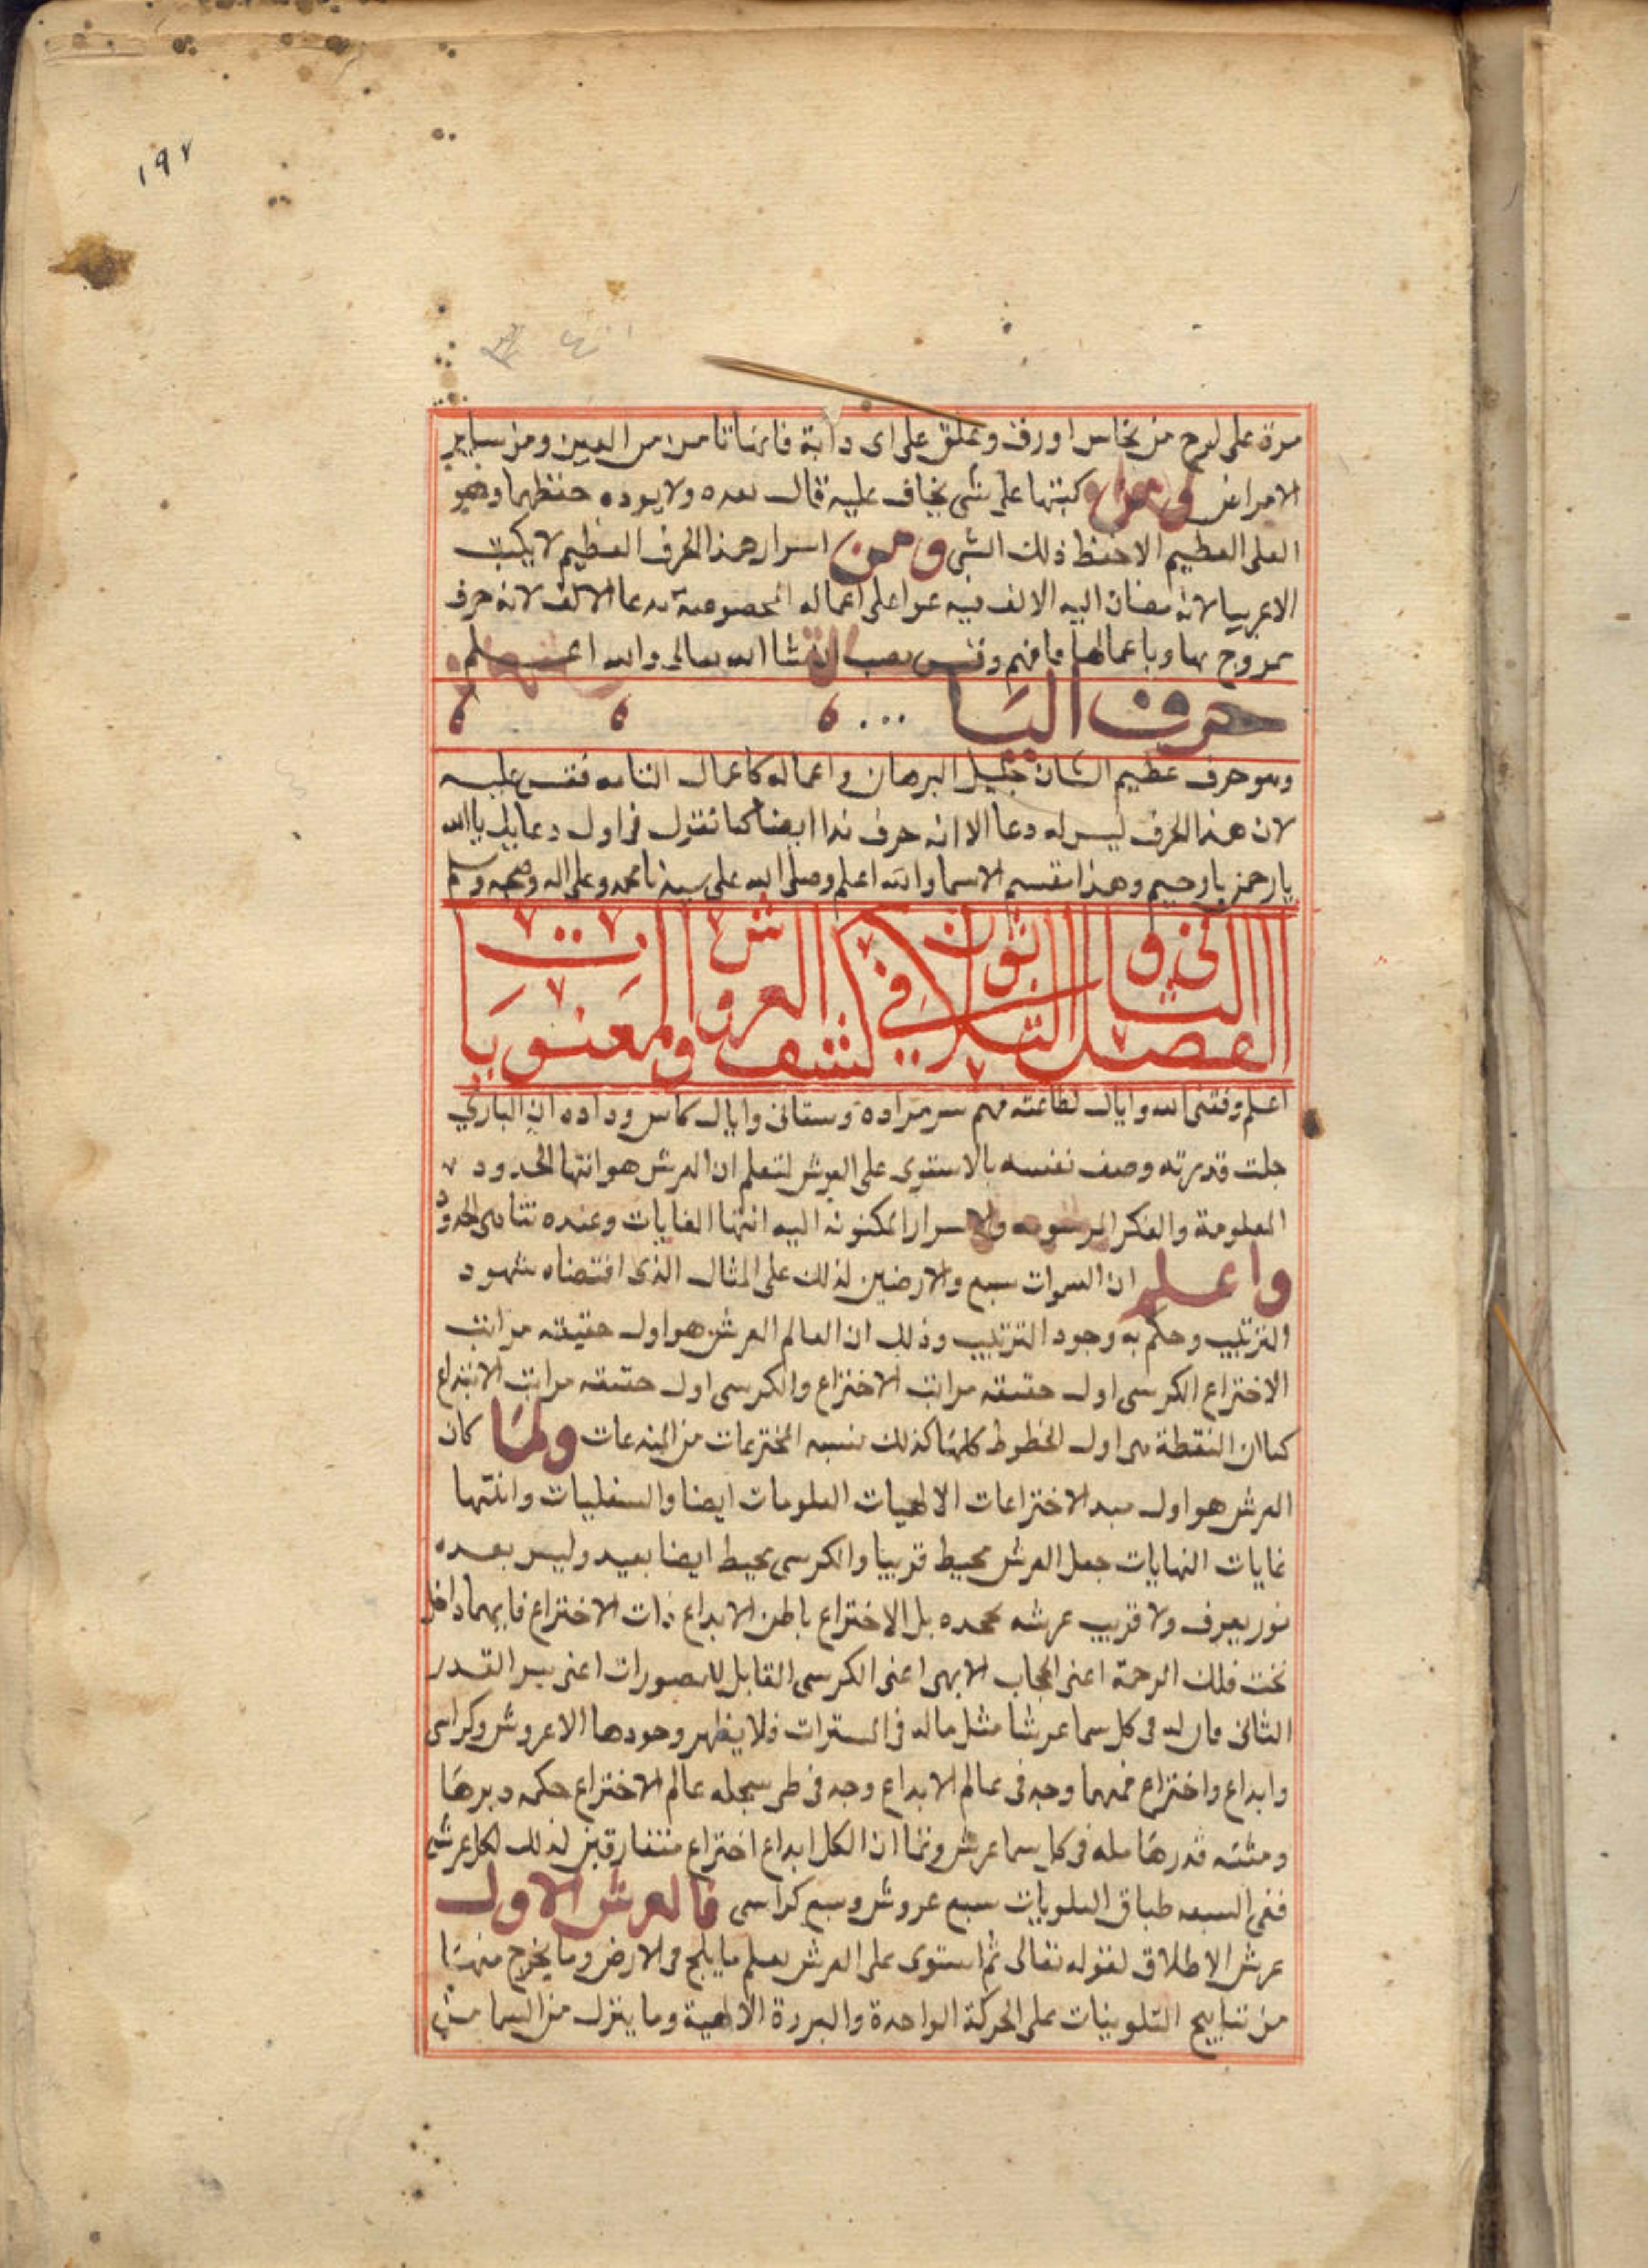 ١٩٧
مرة على لوح من نحاس او رق وعلق على اى دابة فانها تامن من العين ومن ساير
الامراض كتبتها على شى يخاف عليه قال بعده ولا يوده حفظهما وهو
العلى العظيم الا حفظ ذلك الشى ومن اسرار هذا الحرف العظيم لا يكتب
الا عربيا لانه مضاف اليه الالف فيه على اعماله المخصوصة الالف لانه حرف
ممزوج بها وباعمالها فافهم وقس تصب ان شا الله تعالى والله اعلم
حرف اليا
وهو حرف عظيم الشان جليل البرهان و اعماله كاعمال فقس عليه
لان هذا الحرف ليس له دعا الا انه حرف ندا ايضا كما تقول فى اول دعايك يا الله
يا رحمن يا رحيم وهذا مقسم الاسما والله اعلم وصلى الله على سيدنا محمد وعلى اله وصحبه وسلم
الفصل الثانى و الثلاثون فى كشف العرش ومعنويات
اعلم وفقنى الله واياك لطاعته وفهم سر مراده وسقانى واياك كاس وداده ان البارى
جلت قدرته وصف نفسه بالاستوى على العرش لتعلم ان العرش هو انتها الحدود
المعلومة والفكر المرسومه والاسرار المكنونه اليه انتها الغايات وعنده تتناهى الحدود
واعلم ان السموات سبع والارضين كذلك على المثال الذى اقتضاه شهود
الترتيب وحكم به وجود التركيب وذلك ان العالم العرش هو اول حقيقه مراتب
الاختراع الكرسى اول حقيقه مراتب الاختراع والكرسى اول حقيقه مراتب الابتداع
كما ان النقطة هى اول الخطوط كلها كذلك نسبه المخترعات من المبدعات ولما كان
العرش هو اول مبدا الاختراعات الالهيات العلويات ايضا والسفليات وانتها
غايات النهايات جعل العرش محيط قريبا والكرسى محيط ايضا بعيد وليس بعده
نور يعرف ولا قريب عرشه بل الاختراع باطن الابداع ذات الاختراع داخل
تحت فلك الرحمة اعنى الحجاب الابهى اعنى الكرسى القابل للصورات اعنى سر القدر
الثانى فان له فى كل سما عرشا مثل ماله فى السترات فلا يظهر وجودها الا عروش وكراسى
وابداع واختراع فمنهما وجد فى عالم الابداع وجد فى عالم الاختراع حكمه دبرها
قدرها فى كل سما عرش ان الكل ابداع اختراع كذلك لكل عرش
ففى السبعه طباق العلويات سبع عروش وسبع كراسى فالعرش الاول
عرش الاطلاق لقوله تعالى ثم استوى على العرش يعلم ما يلج فى الارض وما يخرج منها
من نتايج التلوينات على الحركة الواحدة الالهية وما ينزل من السما من